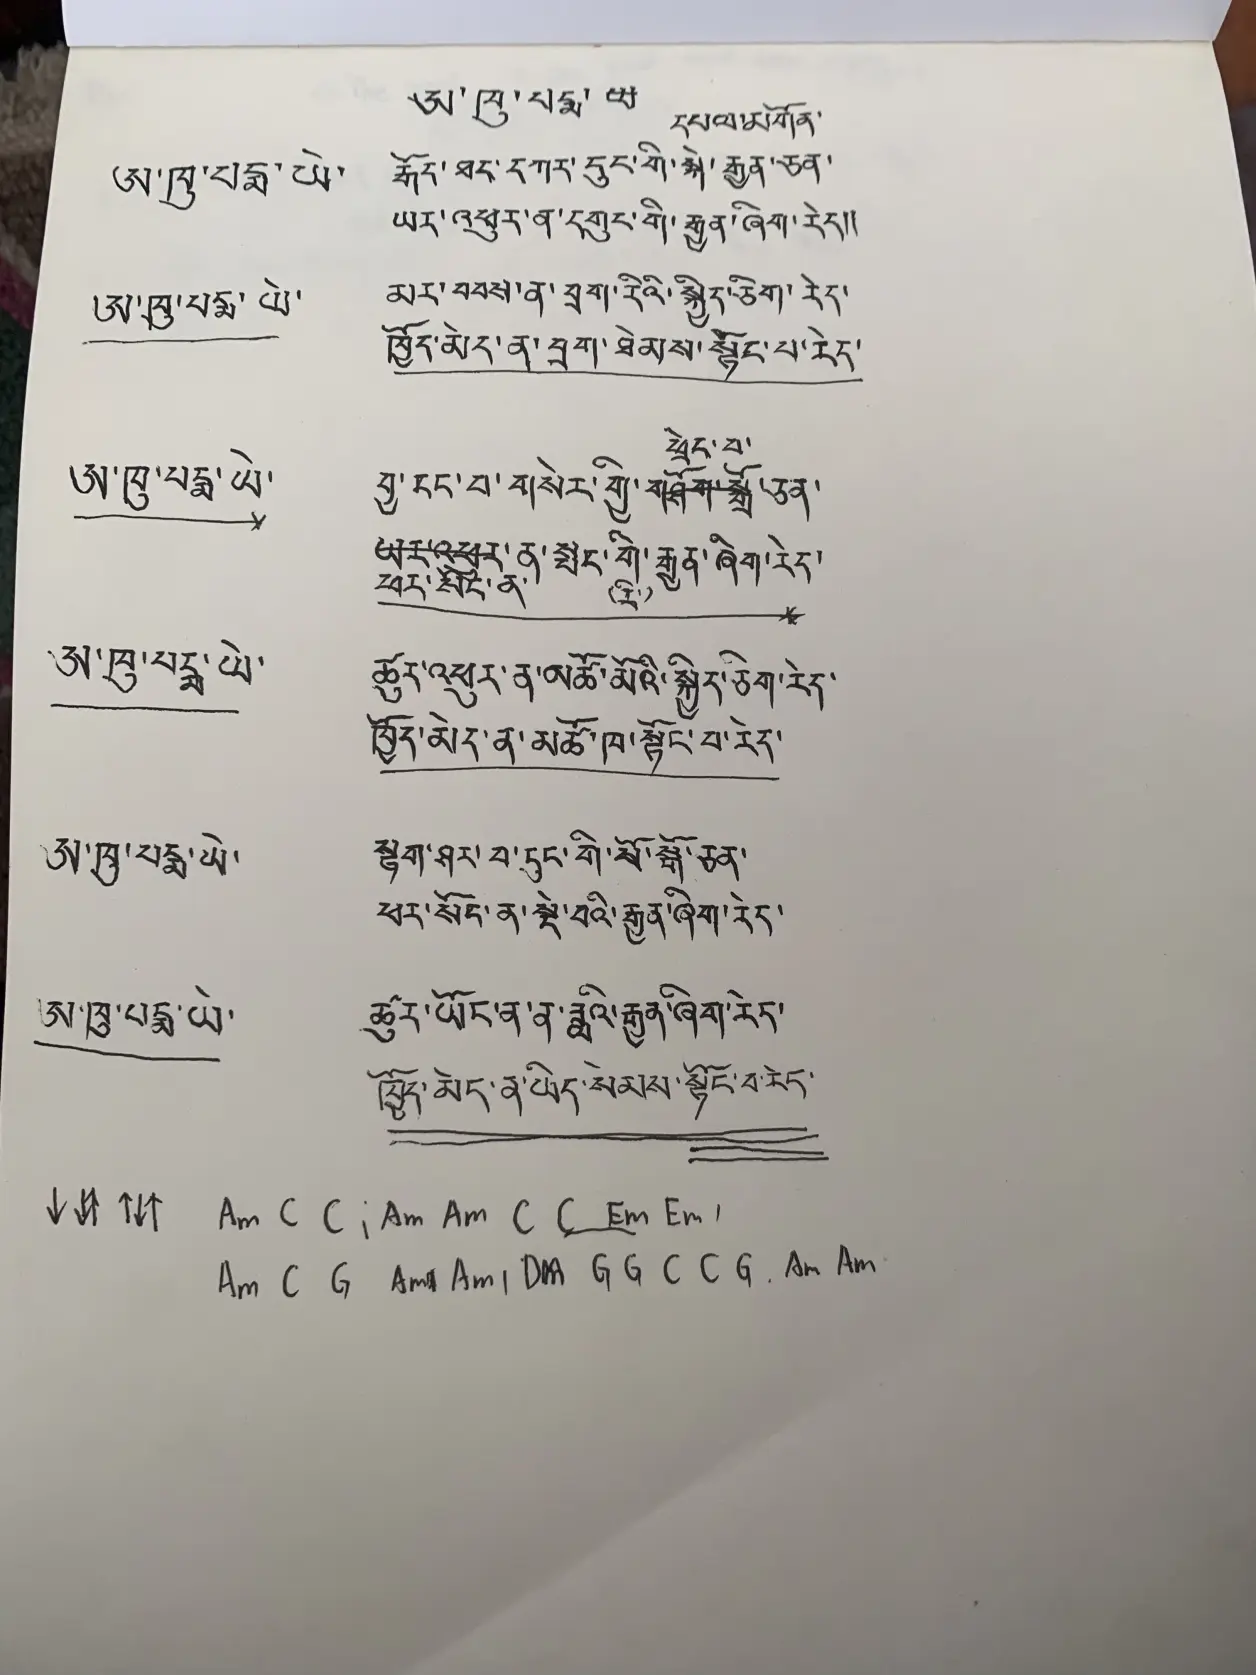 ཨ་ཁུ་པདྨ།
དཔལ་མགོན་
ཨ་ཁུ་པདྨ་ཡེ་ རྒོད་ཐང་དཀར་དུང་གི་སྐེ་རྒྱན་ཅན་
ཡར་འཕུར་ན་དགུང་གི་རྒྱན་ཞིག་རེད།།
ཨ་ཁུ་པདྨ་ཡེ་ མར་བབས་ན་བྲག་རིའི་སྐྱིད་ཅིག་རེད་
ཁྱོད་མེད་ན་བྲག་ཐེམས་སྟོང་པ་རེད་
ཕྲེང་བ་
ཨ་ཁུ་པདྨ་ཡེ་ བྱ་ངང་བ་གསེར་གྱི་ ཅན་
ཡར་འཕུར་ན་སྤང་གི་རྒྱན་ཞིག་རེད་
ཕར་སོང་ན་ (རི་)
ཨ་ཁུ་པདྨ་ཡེ་ ཚུར་འཕུར་ན་མཚོ་མོའི་སྐྱིད་ཅིག་རེད་
ཁྱོད་མེད་ན་མཚོ་ཁ་སྟོང་བ་རེད་
ཨ་ཁུ་པདྨ་ཡེ་ སྟག་ཤར་བ་དུང་གི་སོ་སྒོ་ཅན་
ཕར་སོང་ན་སྡེ་བའི་རྒྱན་ཞིག་རེད་
ཨ་ཁུ་པདྨ་ཡེ་ ཚུར་ཡོང་ན་ན་ཟླའི་རྒྱན་ཞིག་རེད་
ཁྱོད་མེད་ན་ཡིད་སེམས་སྟོང་བ་རེད་
↓↓↑ ↑↓↑ Am C C ; Am Am C C Em Em ,
Am C G Am Am , G G C C G . Am Am